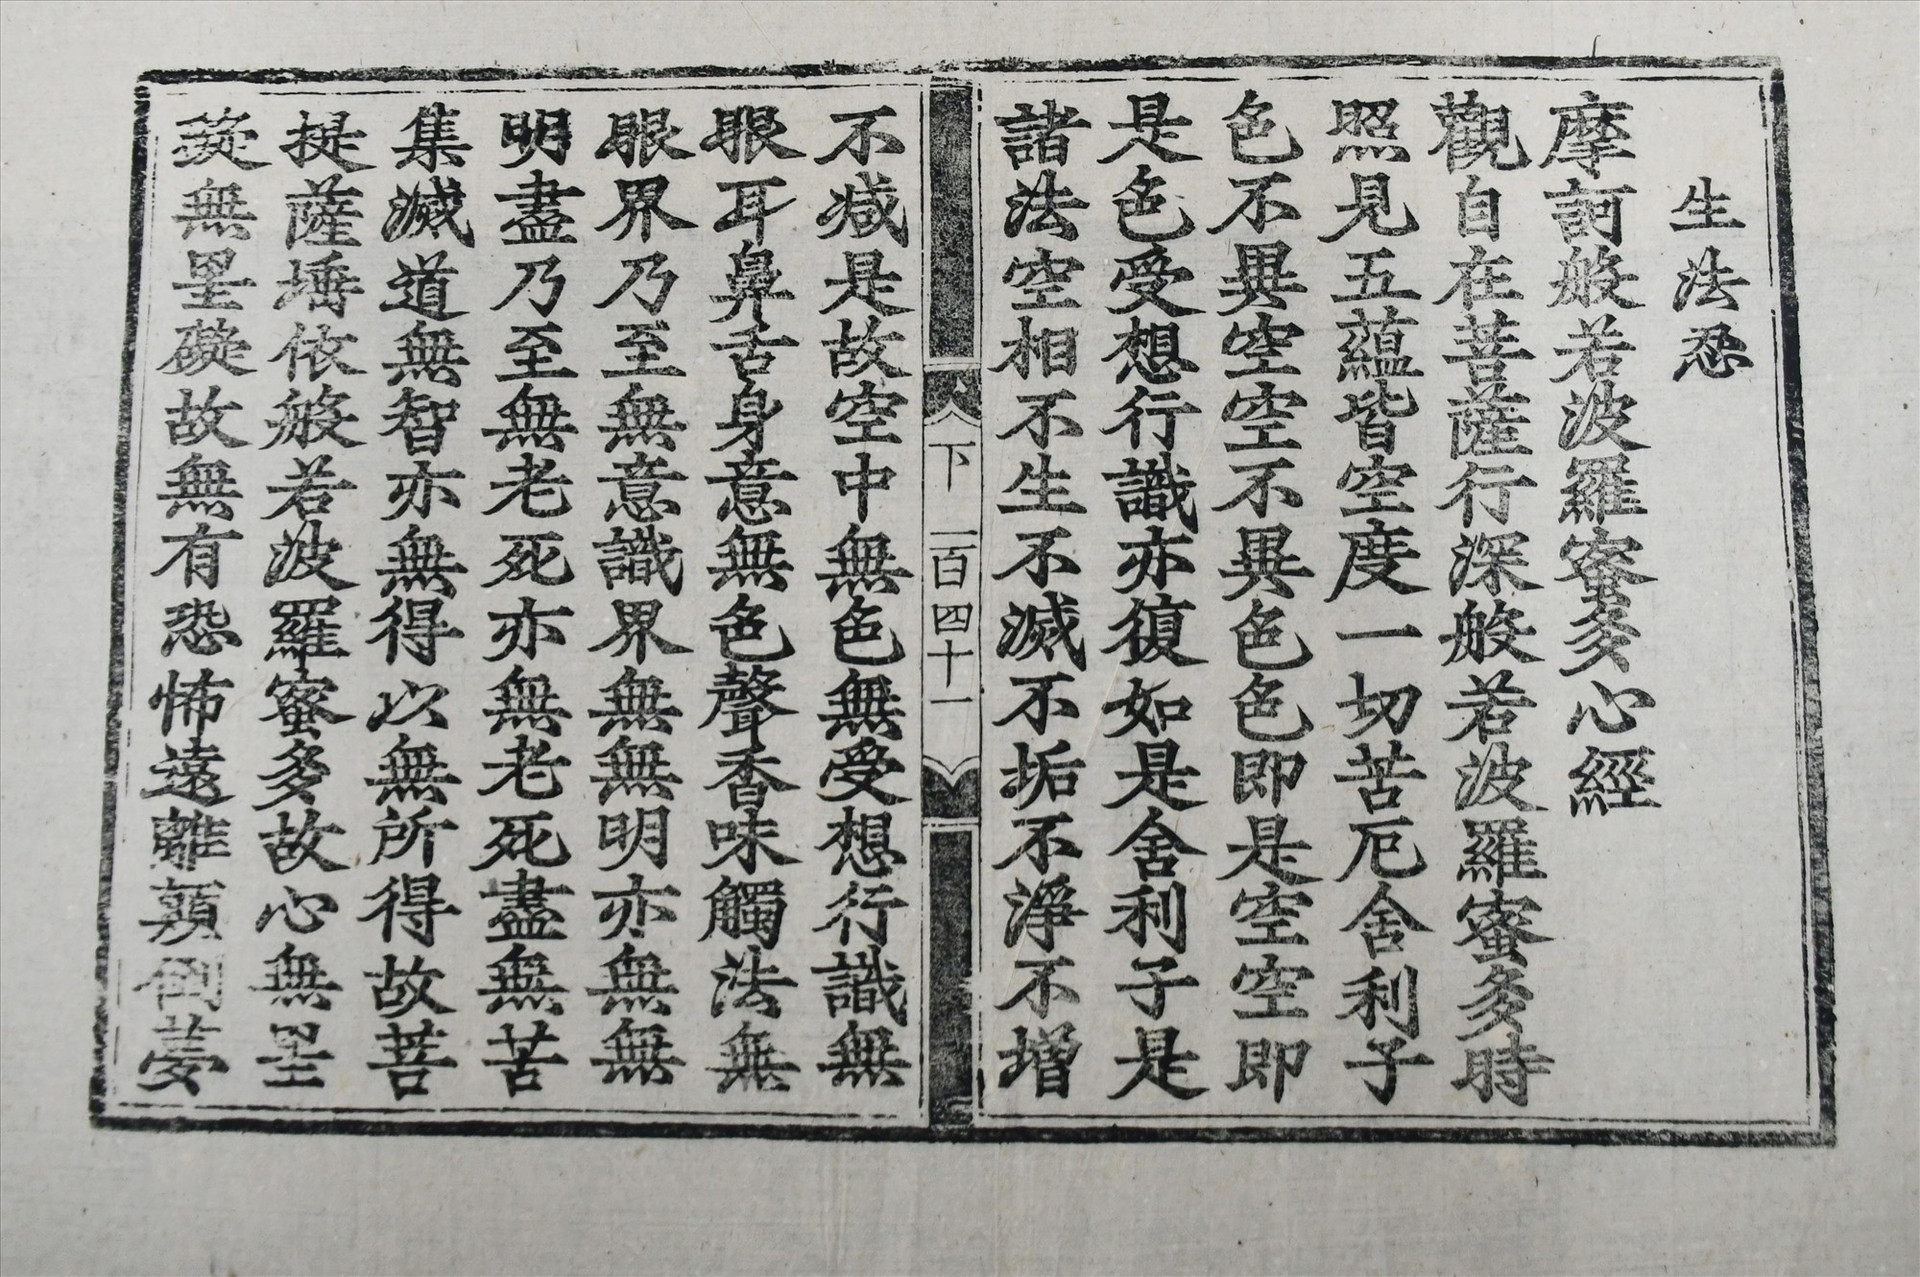 生法忍
摩訶般若波羅蜜多心經
觀自在菩薩行深般若波羅蜜多時
照見五蘊皆空度一切苦厄舍利子
色不異空空不異色色即是空空即
是色受想行識亦復如是舍利子是
諸法空相不生不滅不垢不淨不增
下 一百四十一
不減是故空中無色無受想行識無
眼耳鼻舌身意無色聲香味觸法無
眼界乃至無意識界無無明亦無無
明盡乃至無老死亦無老死盡無苦
集滅道無智亦無得以無所得故菩
提薩埵依般若波羅蜜多故心無罣
礙無罣礙故無有恐怖遠離顛倒夢